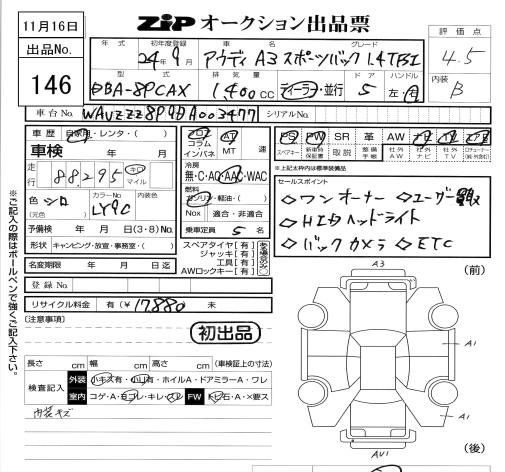 11月16日
ZiP オークション出品票
出品No.
146
年式 初年度登録 車名 グレード
24年9月 アウディ A3 スポーツバック 1.4TFSI
型式 排気量 ドア ハンドル
DBA-8PCAX 1,400cc ディーラー・並行 5 左・右
評価点
4.5
内装
B
車台No. WAUZZZ8P9DA003477 シリアルNo.
車歴 自家用・レンタ・( )
車検 年 月
走行 88,295 キロ マイル
色 シロ (元色) カラーNo. LY9C 内装色
予備検 年 月 日(3・8)No.
形状 キャンピング・放宣・事務室・( )
名変期限 年 月 日迄
登録No.
リサイクル料金 有(¥17,880 未
フロア コラム インパネ AT MT 速
冷房
無・C・AC・AAC・WAC
燃料
ガソリン・軽油・( )
Nox 適合・非適合
乗車定員 5 名
スペアタイヤ[有]
ジャッキ[有]
工具[有]
AWロックキー[有]
PS PW SR 革 AW ナビ TV エアB
スペアキー 新車時保証書 取説 整備手帳 社外AW 社外ナビ 社外TV
※上記太枠内は標準装備品
セールスポイント
◇ワンオーナー ◇ユーザー買取
◇HIDヘッドライト
◇バックカメラ ◇ETC
[注意事項]
初出品
長さ cm 幅 cm 高さ cm (車検証上の寸法)
検査記入 外装 小キズ有・小凹有・ホイルA・ドアミラーA・ワレ
室内 コゲ・A・ヨゴレ・キレ・スレ FW トビ石・A・×要ス
内装キズ
※ご記入の際はボールペンで強くご記入下さい。
A3 (前)
A1
A1
AU1 (後)